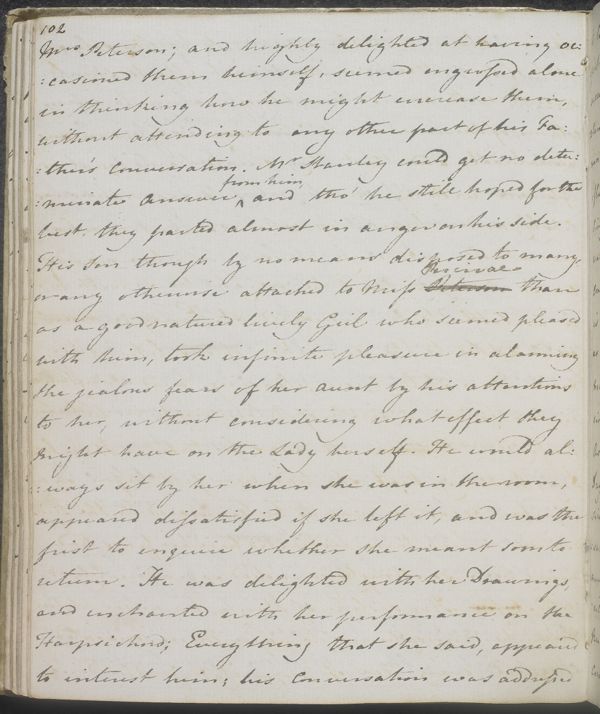 102
Mrs Peterson; and highly delighted at having oc:
:casioned them himself, seemed engrossed alone
in thinking how he might increase them,
without attending to any other part of his Fa:
:ther's Conversation. Mr Stanley could get no deter:
:minate answer from him, and tho' he still hoped for the
best, they parted almost in anger on his side.
His son though by no means disposed to marry,
or any otherwise attached to Miss Peterson Percival than
as a good natured lively Girl who seemed pleased
with him, took infinite pleasure in alarming
the jealous fears of her aunt by his attentions
to her, without considering what effect they
might have on the Lady herself. He would al:
:ways sit by her when she was in the room,
appeared dissatisfied if she left it, and was the
first to enquire whether she meant soon to
return. He was delighted with her Drawings,
and enchanted with her performance on the
Harpsichord; Everything that she said, appeared
to interest him; his Conversation was addressed